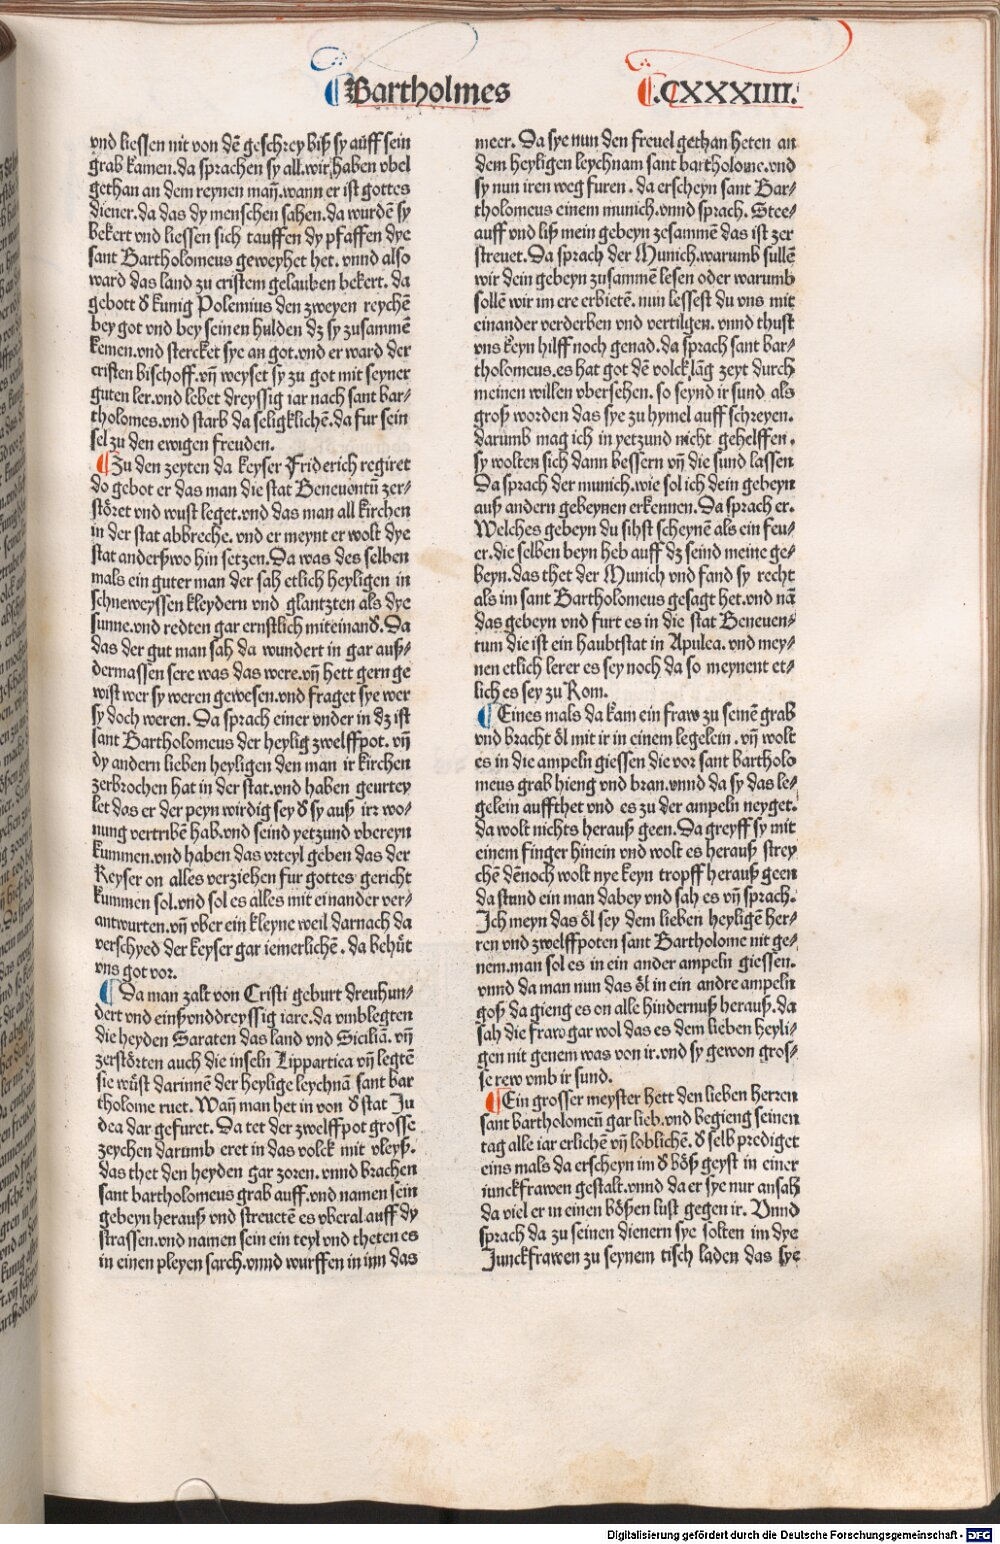 Bartholmes
.CXXXIIII.
vnd liessen nit von dē geschrey biß sy auff sein
grab kamen.da sprachen sy all.wir haben vbel
gethan an dem reynen mañ.wann er ist gottes
diener.da das dy menschen sahen.da wurdē sy
bekert vnd liessen sich tauffen dy pfaffen dye
sant Bartholomeus geweyhet het. vnnd also
ward das land zu cristem gelauben bekert. da
gebott đ kunig Polemius den zweyen reychē
bey got vnd bey seinen hulden dz sy zusammē
kemen.vnd stercket sye an got.vnd er ward der
cristen bischoff.vñ weyset sy zu got mit seyner
guten ler.vnd lebet dreyssig iar nach sant bar⸗
tholomes.vnd starb da seligklichē.da fur sein
sel zu den ewigen freuden.
Zu den zeyten da keyser Friderich regiret
do gebot er das man die stat Beneuontū zer⸗
störet vnd wust leget.vnd das man all kirchen
in der stat abbreche. vnd er meynt er wolt dye
stat anderßwo hin setzen.Da was des selben
mals ein guter man der sah etlich heyligen in
schneweyssen kleydern vnd glantzten als dye
sunne.vnd redten gar ernstlich miteinanđ.Da
das der gut man sah da wundert in gar auß⸗
dermassen sere was das were.vñ hett gern ge
wist wer sy weren gewesen.vnd fraget sye wer
sy doch weren. Da sprach einer vnder in dz ist
sant Bartholomeus der heylig zwelffpot. vñ
dy andern lieben heyligen den man ir kirchen
zerbrochen hat in der stat.vnd haben geurtey
let das er der peyn wirdig sey đ sy auß irr wo⸗
nung vertribē hab.vnd seind yetzund vbereyn
kummen.vnd haben das vrteyl geben das der
Keyser on alles verziehen fur gottes gericht
kummen sol.vnd sol es alles mit einander ver⸗
antwurten.vñ vber ein kleyne weil darnach da
verschyed der keyser gar iemerlichē . da behüt
vns got vor.
Da man zalt von Cristi geburt dreuhun⸗
dert vnd einßvnddreyssig iare.da vmblegten
die heyden Saraten das land vnd Siciliā. vñ
zerstörten auch die inseln Lippartica vñ legtē
sie wüst darinnē der heylige leychnā sant bar
tholome ruet. Wañ man het in von đ stat Ju
dea dar gefuret. Da tet der zwelffpot grosse
zeychen darumb eret in das volck mit vleyß.
das thet den heyden gar zoren. vnnd brachen
sant bartholomeus grab auff.vnd namen sein
gebeyn herauß vnd streuctē es vberal auff dy
strassen.vnd namen sein ein teyl vnd theten es
in einen pleyen sarch.vnnd wurffen in inn das
meer. Da sye nun den freuel gethan heten an
dem heyligen leychnam sant bartholome.vnd
sy nun iren weg furen . da erscheyn sant Bar⸗
tholomeus einem munich.vnnd sprach. Stee⸗
auff vnd liß mein gebeyn zesammē das ist zer
streuet.Da sprach der Munich.warumb sullē
wir dein gebeyn zusammē lesen oder warumb
sollē wir im ere erbietē. nun lessest du vns mit
einander verderben vnd vertilgen. vnnd thust
vns keyn hilff noch genad.da sprach sant bar⸗
tholomeus.es hat got dē volck lāg zeyt durch
meinen willen vbersehen. so seynd ir sund als
groß worden das sye zu hymel auff schreyen.
darumb mag ich in yetzund nicht gehelffen .
sy wolten sich dann bessern vñ die sund lassen
Da sprach der munich.wie sol ich dein gebeyn
auß andern gebeynen erkennen. Da sprach er.
Welches gebeyn du sihst scheynē als ein feu⸗
er.die selben beyn heb auff dz seind meine ge⸗
beyn.das thet der Munich vnd fand sy recht
als im sant Bartholomeus gesagt het.vnd nā
das gebeyn vnd furt es in die stat Beneuen⸗
tum die ist ein haubtstat in Apulea. vnd mey⸗
nen etlich lerer es sey noch da so meynent et⸗
lich es sey zu Rom.
Eines mals da kam ein fraw zu seinē grab
vnd bracht öl mit ir in einem legelein . vñ wolt
es in die ampeln giessen die vor sant bartholo
meus grab hieng vnd bran.vnnd da sy das le⸗
gelein auffthet vnd es zu der ampeln neyget.
da wolt nichts herauß geen.Da greyff sy mit
einem finger hinein vnd wolt es herauß strey
chē dēnoch wolt nye keyn tropff herauß geen
da stund ein man dabey vnd sah es vñ sprach.
Ich meyn das öl sey dem lieben heyligē her⸗
ren vnd zwelffpoten sant Bartholome nit ge⸗
nem.man sol es in ein ander ampeln giessen.
vnnd da man nun das öl in ein andre ampeln
goß da gieng es on alle hindernuß herauß.da
sah die fraw gar wol das es dem lieben heyli⸗
gen nit genem was von ir.vnd sy gewon gros⸗
se rew vmb ir sund.
Ein grosser meyster hett den lieben herren
sant bartholomeū gar lieb.vnd begieng seinen
tag alle iar erlichē vñ loblichē. đ selb prediget
eins mals da erscheyn im đ böß geyst in einer
iunckfrawen gestalt.vnnd da er sye nur ansah
da viel er in einen bößen lust gegen ir. Vnnd
sprach da zu seinen dienern sye solten im dye
Junckfrawen zu seynem tisch laden das sye
Digitalisierung gefördert durch die Deutsche Forschungsgemeinschaft - DFG